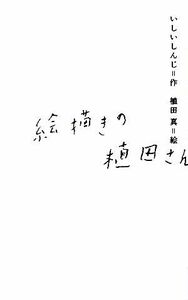 いしいしんじ=作 植田 真=絵
絵描きの
植田さん